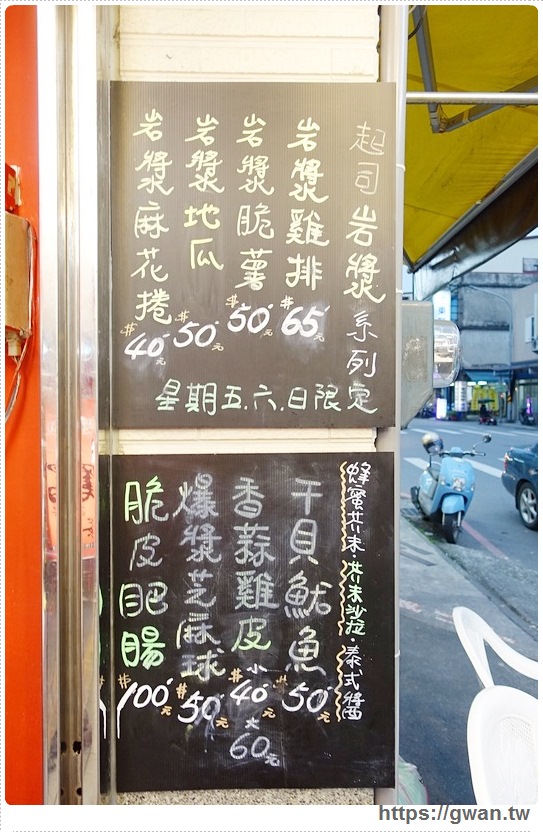 起司岩漿系列
岩漿雞排 $65元
岩漿脆薯 $50元
岩漿地瓜 $50元
岩漿麻花捲 $40元
星期五.六.日限定
蜂蜜芥末·芥末沙拉·泰式醬
干貝魷魚 $50元
香蒜雞皮 小$40元 大60元
爆漿芝麻球 $50元
脆皮肥腸 $100元
https://gwan.tw